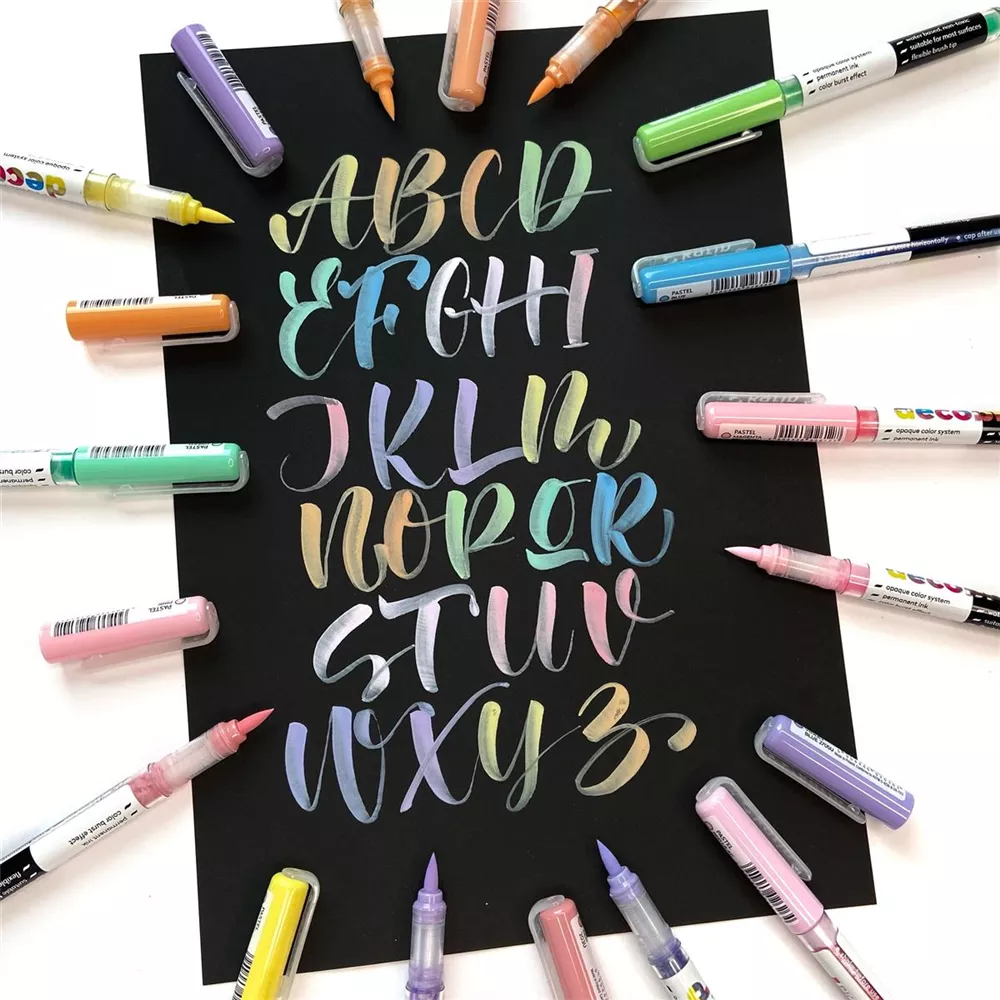 ABCD
EFGHI
JKLM
NOPQR
STUV
WXYZ
water based, non-toxic
suitable for most surfaces
flexible brush tip
opaque color system
permanent ink
color burst effect
opaque color system
deco
store horizontally
cap after
PASTEL
BLUE
PASTEL
MAGENTA
deco
opaque color system
permanent ink
PASTEL
permanent
color burst
deco
opaque color system
permanent ink
color burst effect
PASTEL
PINK
permanent ink
color burst effect
flexible
PASTEL
PASTEL